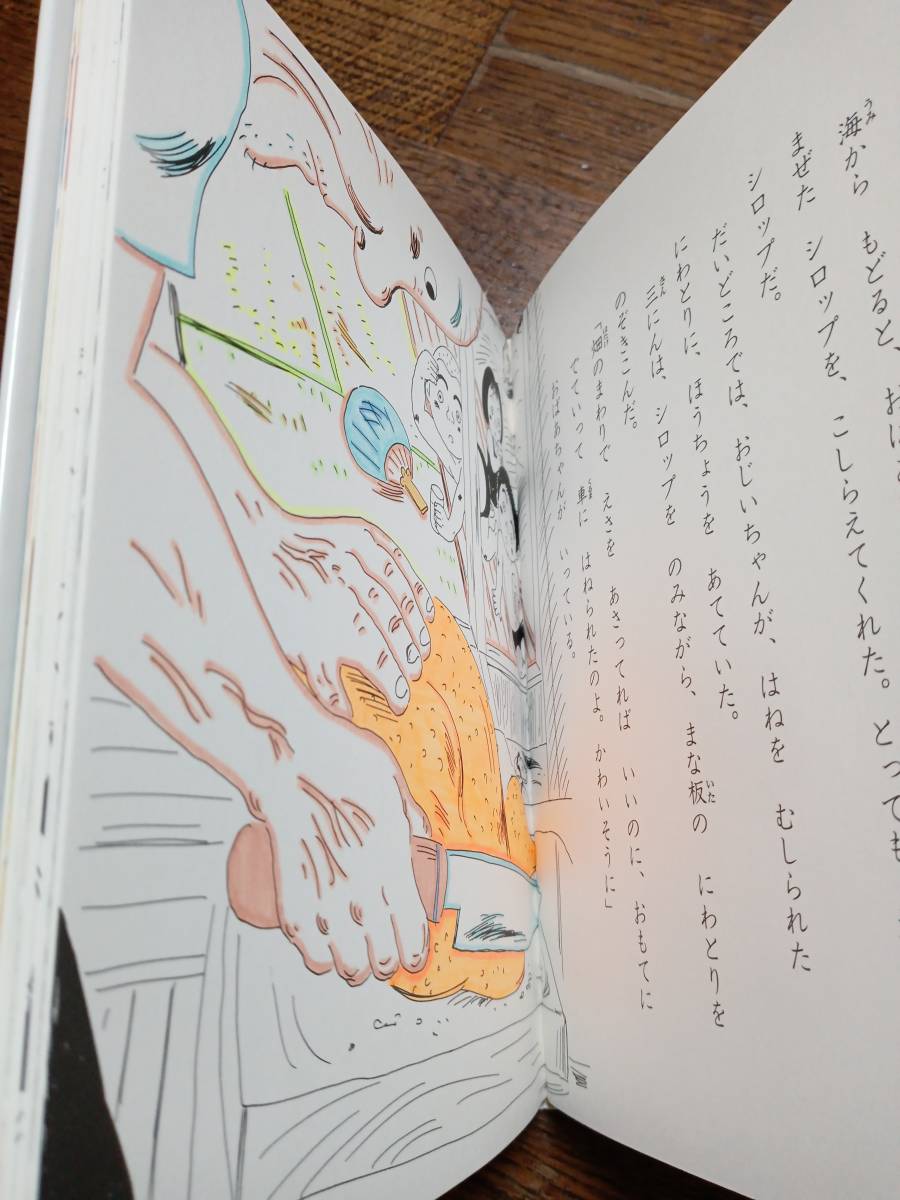 海から もどると、おば
まぜた シロップを、こしらえてくれた。とっても
シロップだ。
だいどころでは、おじいちゃんが、はねを むしられた
にわとりに、ほうちょうを あてていた。
三にんは、シロップを のみながら、まな板の にわとりを
のぞきこんだ。
「畑のまわりで えさを あさってれば いいのに、おもてに
でていって 車に はねられたのよ。かわいそうに」
おばあちゃんが いっている。